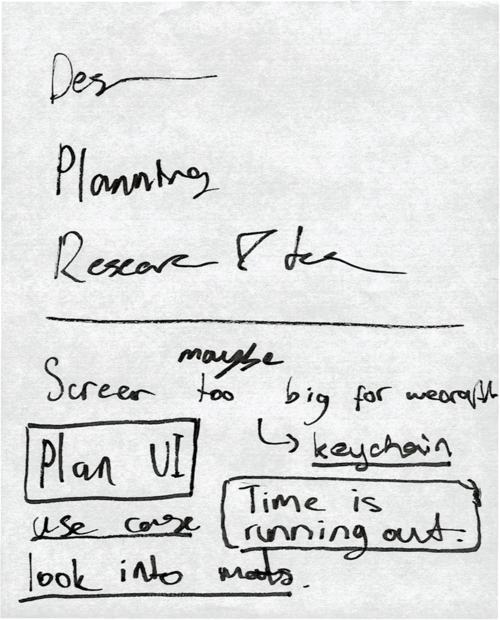 Des
Planning
Research &
maybe
Screen too big for
keychain
Plan UI
Time is
running out.
use case
look into mats.